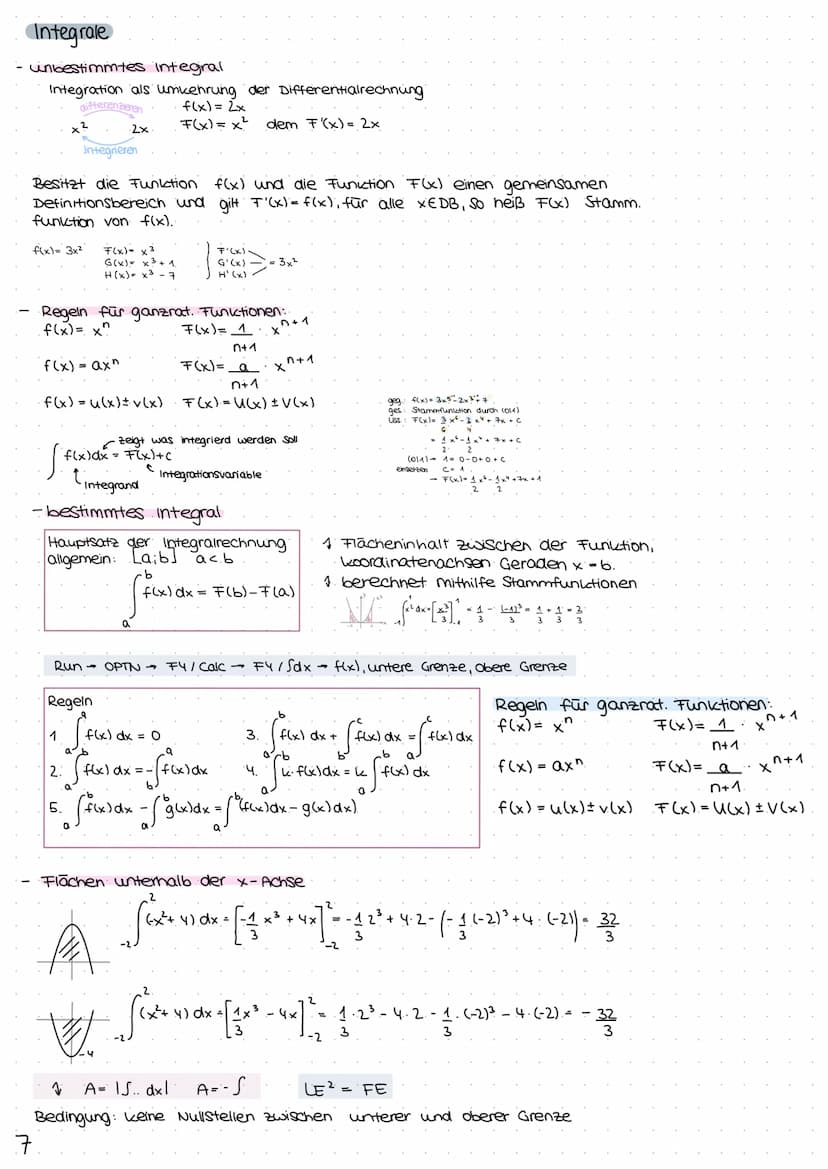 Integrale
- unbestimmtes Integral
Integration als Umkehrung der Differentialrechnung
differenzieren
x² 2x
integrieren
f(x) = 2x
F(x) = x² dem F'(x) = 2x
Besitzt die Funktion f(x) und die Function F(x) einen gemeinsamen
Definitionsbereich und gilt F'(x) = f(x), für alle x∈DB, so heiß F(x) Stamm.
funktion von f(x).
f(x) = 3x² F(x) = x³ F'(x)
G(x) = x³ + 1 G'(x) = 3x²
H(x) = x³ - 7 H'(x)
- Regeln für ganzrat. Funktionen:
f(x) = xⁿ F(x) = 1/(n+1) · xⁿ⁺¹
f(x) = axⁿ F(x) = a/(n+1) · xⁿ⁺¹
f(x) = u(x) ± v(x) F(x) = U(x) ± V(x)
zeigt was integrierd werden soll
∫ f(x)dx = F(x)+c
Integrand
Integrationsvariable
geg: f(x) = 3x⁵ - 2x³ + 7
ges: Stammfunktion durch (0|1)
Lös: F(x) = 3/6 x⁶ - 2/4 x⁴ + 7x + c
= 1/2 x⁶ - 1/2 x⁴ + 7x + c
(0|1) → 1 = 0 - 0 + 0 + c
einsetzen c = 1
→ F(x) = 1/2 x⁶ - 1/2 x⁴ + 7x + 1
- bestimmtes Integral
Hauptsatz der Integralrechnung
allgemein: [a;b] a < b
∫ₐᵇ f(x) dx = F(b) - F(a)
Flächeninhalt zwischen der Funktion,
Koordinatenachsen Geraden x = b.
berechnet mithilfe Stammfunktionen
∫₋₁¹ x² dx = [x³/3]₋₁¹ = 1/3 - (-1)³/3 = 1/3 + 1/3 = 2/3
Run → OPTN → F4 / Calc → F4 / ∫dx → f(x), untere Grenze, obere Grenze
Regeln
1 ∫ₐᵃ f(x) dx = 0
2. ∫ₐᵇ f(x) dx = - ∫_b^a f(x) dx
3. ∫ₐᵇ f(x) dx + ∫_b^c f(x) dx = ∫ₐᶜ f(x) dx
4. ∫ₐᵇ k·f(x) dx = k ∫ₐᵇ f(x) dx
5. ∫ₐᵇ f(x) dx - ∫ₐᵇ g(x) dx = ∫ₐᵇ (f(x)dx - g(x)dx)
Regeln für ganzrat. Funktionen:
f(x) = xⁿ F(x) = 1/(n+1) · xⁿ⁺¹
f(x) = axⁿ F(x) = a/(n+1) · xⁿ⁺¹
f(x) = u(x) ± v(x) F(x) = U(x) ± V(x)
- Flächen unterhalb der x-Achse
∫₋₂² (-x² + 4) dx = [-1/3 x³ + 4x]₋₂² = -1/3 2³ + 4·2 - (-1/3 (-2)³ + 4·(-2)) = 32/3
∫₋₂² (x² + 4) dx = [1/3 x³ - 4x]₋₂² = 1/3 · 2³ - 4·2 - 1/3 · (-2)³ - 4·(-2) = - 32/3
-4
A = |∫.. dx| A = -∫ LE² = FE
Bedingung: keine Nullstellen zwischen unterer und oberer Grenze
7